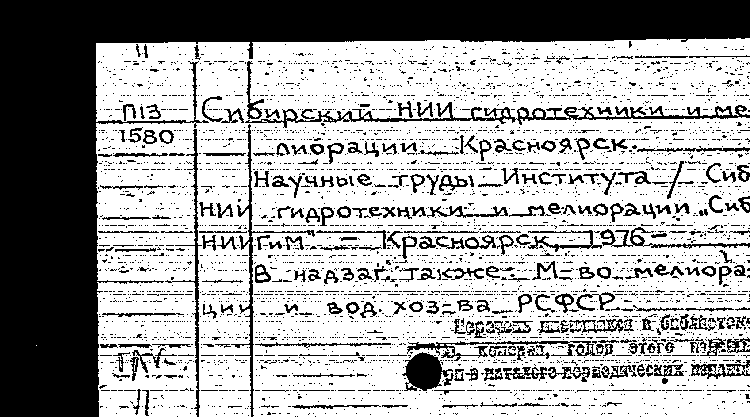 П13 Сибирский НИИ гидротехники и ме-
1580 либрации. Красноярск.
Научные труды Института / Сиб
НИИ гидротехники и мелиорации „Сиб
НИИГиМ" – Красноярск, 1976–
В надзаг. также: М-во мелиора-
ции и вод. хоз-ва РСФСР
в библиотек
годов этого издани
периодических издани